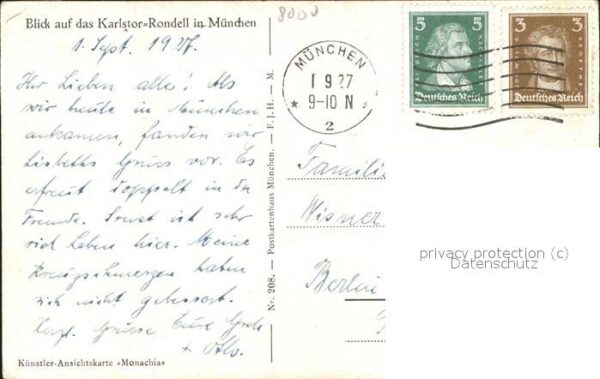 Blick auf das Karlstor-Rondell in München
8000
1. Sept. 1927.
Ihr Lieben alle! Als
wir heute in München
ankamen, fanden wir
Lisbeths Gruss vor. Es
erfreut doppelt in der
Fremde. Sonst ist sehr
viel Leben hier. Meine
haben
sich nicht gebessert.
Herzl. Grüsse Eure
+ Otto.
Künstler-Ansichtskarte »Monachia«
Nr. 208. — Postkartenhaus München. — F. J. H. — M.
MÜNCHEN
1 9 27
9-10 N
2
5 5
FRIEDRICH V. SCHILLER
Deutsches Reich
3 3
Deutsches Reich
Familie
Wisner
Berlin
privacy protection (c)
Datenschutz